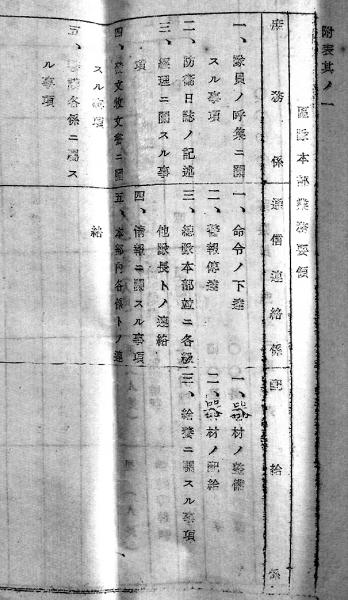 附表其ノ一
區隊本部業務要領
庶務係
一、隊員ノ呼集ニ關
スル事項
二、防衛日誌ノ記述
三、經理ニ關スル事
項
四、文收文書ニ關
スル事項
五、各係ニ屬ス
ル事項
通信連絡係
一、命令ノ下達
二、警報傳達
三、總隊本部竝ニ各級
他隊長トノ連絡
四、情報ニ關スル事項
五、本部内各係トノ連
絡
配給係
一、器材ノ整備
二、器材ノ配給
三、給養ニ關スル事項